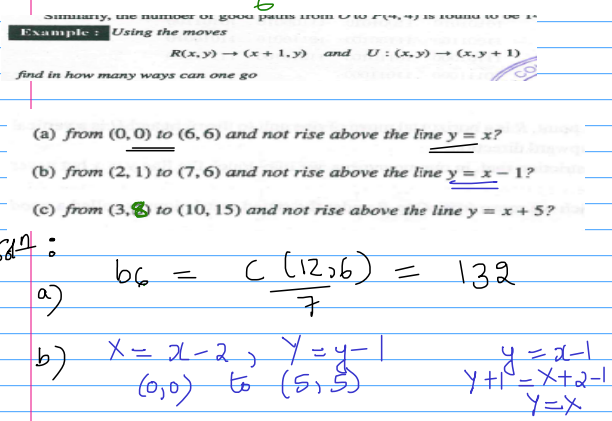 Similarly, the number of good paths from O to P(4, 4) is found to be 1
Example : Using the moves
R(x, y) → (x + 1, y) and U : (x, y) → (x, y + 1)
find in how many ways can one go
(a) from (0, 0) to (6, 6) and not rise above the line y = x?
(b) from (2, 1) to (7, 6) and not rise above the line y = x − 1?
(c) from (3, 8) to (10, 15) and not rise above the line y = x + 5?
Soln :
a) b6 = C (12,6) / 7 = 132
b) X = x-2 , Y = y-1 y = x-1
(0,0) to (5,5) Y+1 = X+2-1
Y=X